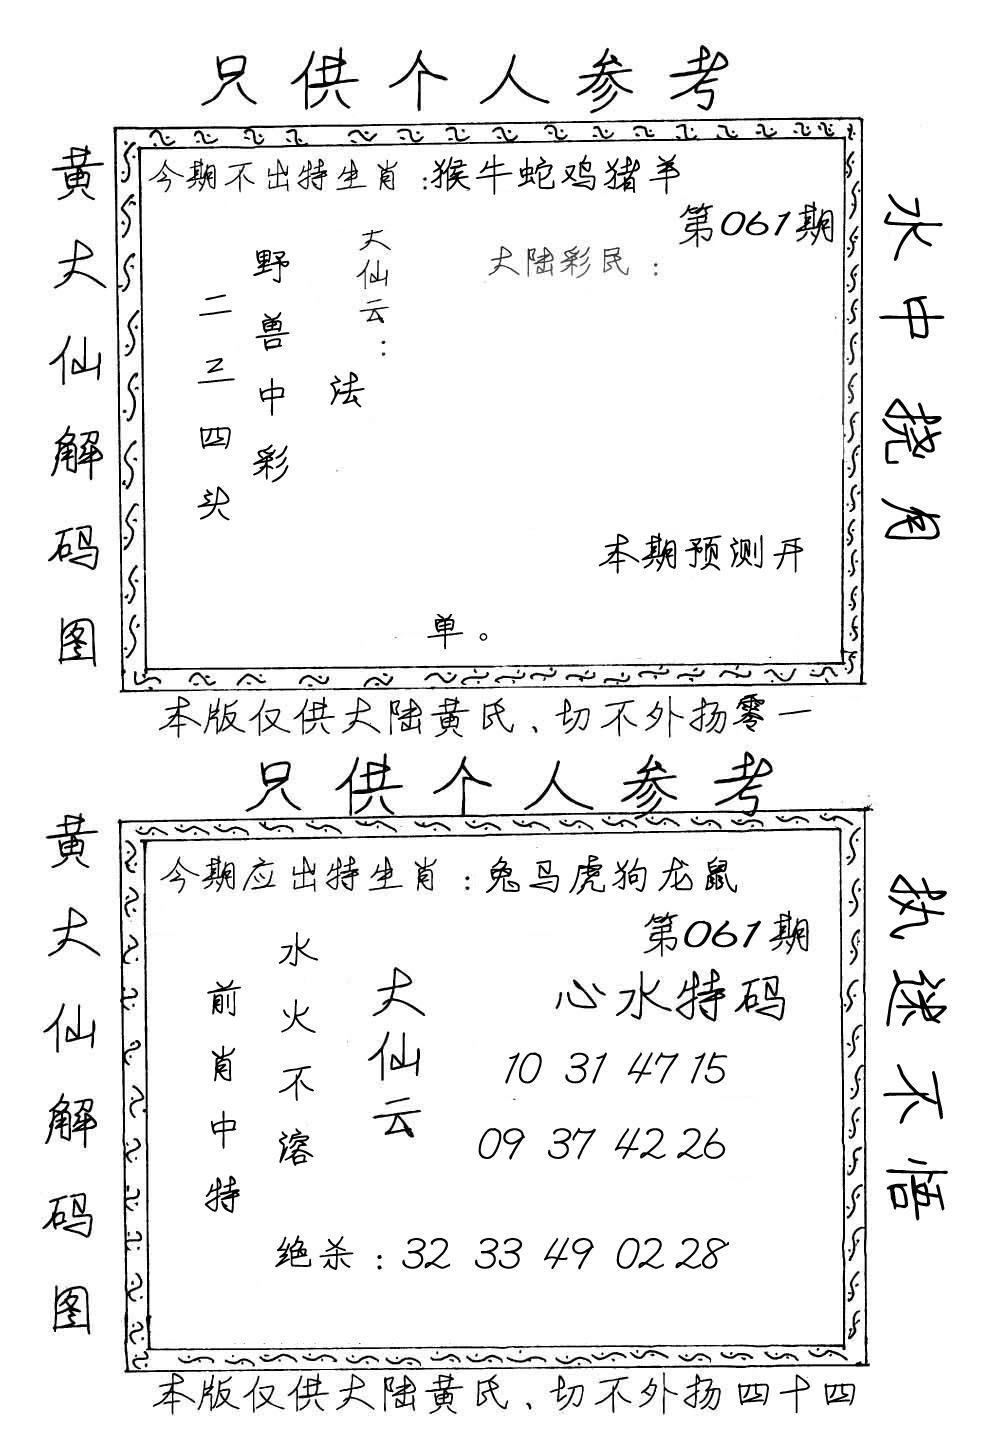 只供个人参考
黄大仙解码图
今期不出特生肖:猴牛蛇鸡猪羊
第061期
大陆彩民:
大仙云:
法
野兽中彩
二三四头
本期预测开
单。
水中捞月
本版仅供大陆黄氏、切不外扬零一
只供个人参考
黄大仙解码图
今期应出特生肖:兔马虎狗龙鼠
第061期
心水特码
10 31 47 15
09 37 42 26
大仙云
水火不溶
前肖中特
绝杀:32 33 49 02 28
执迷不悟
本版仅供大陆黄氏、切不外扬四十四